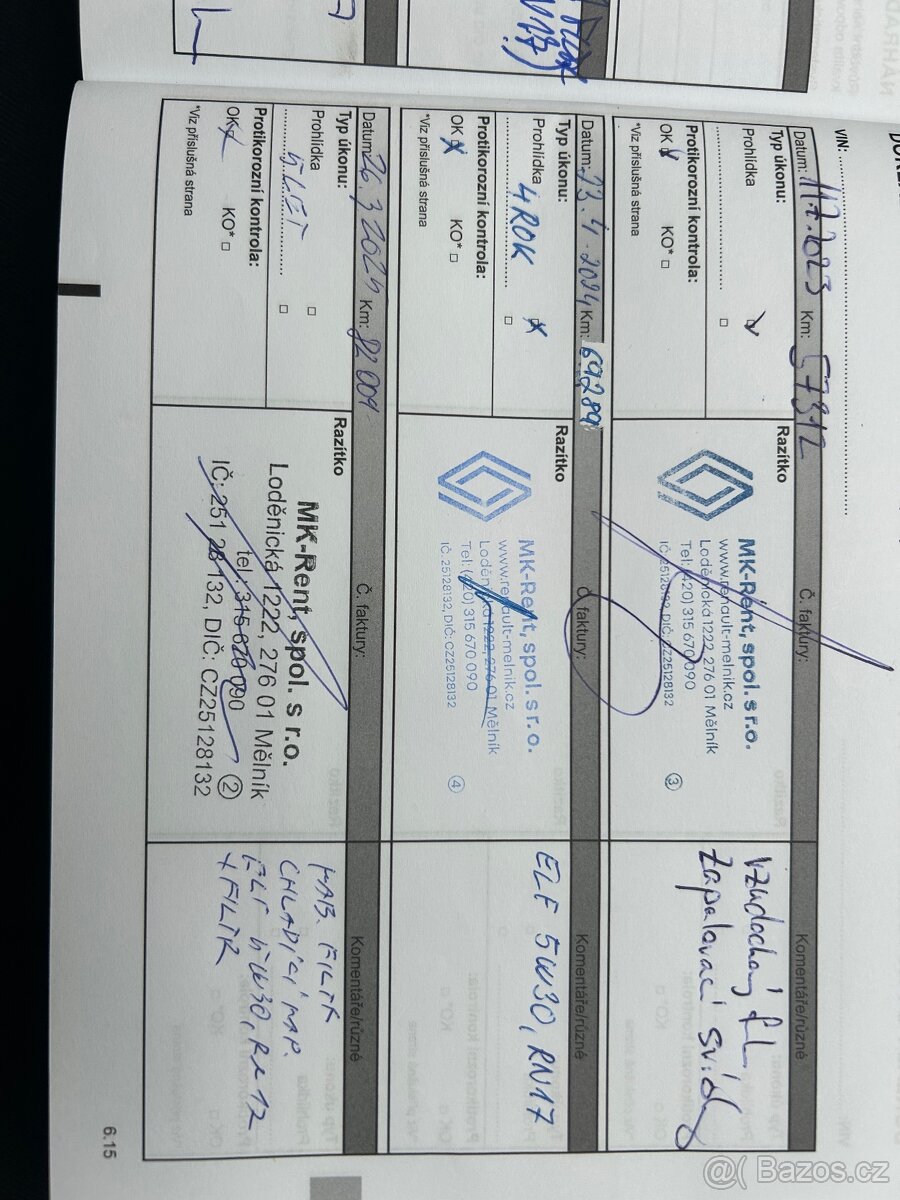 VIN:
Datum: 11.7.2023 Km: 57312
Č. faktury:
Komentáře/různé
Typ úkonu:
Prohlídka
Protikorozní kontrola:
OK
KO*
*Viz příslušná strana
Razítko
MK-Rent, spol. s r.o.
www.renault-melnik.cz
Loděnická 1222, 276 01 Mělník
Tel: (420) 315 670 090
IČ: 25128132, DIČ: CZ25128132
3
Vzduchový fil.
Zapalovací svíčky
Datum: 23.4.2024 Km: 69289
Č. faktury:
Komentáře/různé
Typ úkonu:
Prohlídka
4ROK
Protikorozní kontrola:
OK
KO*
*Viz příslušná strana
Razítko
MK-Rent, spol. s r.o.
www.renault-melnik.cz
Loděnická 1222, 276 01 Mělník
Tel: (420) 315 670 090
IČ: 25128132, DIČ: CZ25128132
4
ELF 5W30, RN17
Datum: 26.3.2025 Km: 82 009
Č. faktury:
Komentáře/různé
Typ úkonu:
Prohlídka
5LET
Protikorozní kontrola:
OK
KO*
*Viz příslušná strana
Razítko
MK-Rent, spol. s r.o.
Loděnická 1222, 276 01 Mělník
tel.: 315 670 090
IČ: 251 28 132, DIČ: CZ25128132
2
KAB. FILTR
CHLADÍCÍ KAP.
ELF 5W30, RN 17
+ FILTR
6.15
@( Bazos.cz